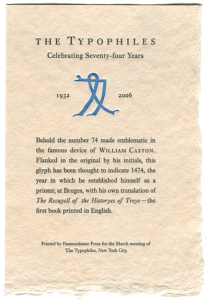 THE TYPOPHILES
Celebrating Seventy-four Years
1932 2006
Behold the number 74 made emblematic in
the famous device of WILLIAM CAXTON.
Flanked in the original by his initials, this
glyph has been thought to indicate 1474, the
year in which he established himself as a
printer, at Bruges, with his own translation of
The Recuyell of the Historyes of Troye—the
first book printed in English.
Printed by Pannonhalma Press for the March meeting of
The Typophiles, New York City.